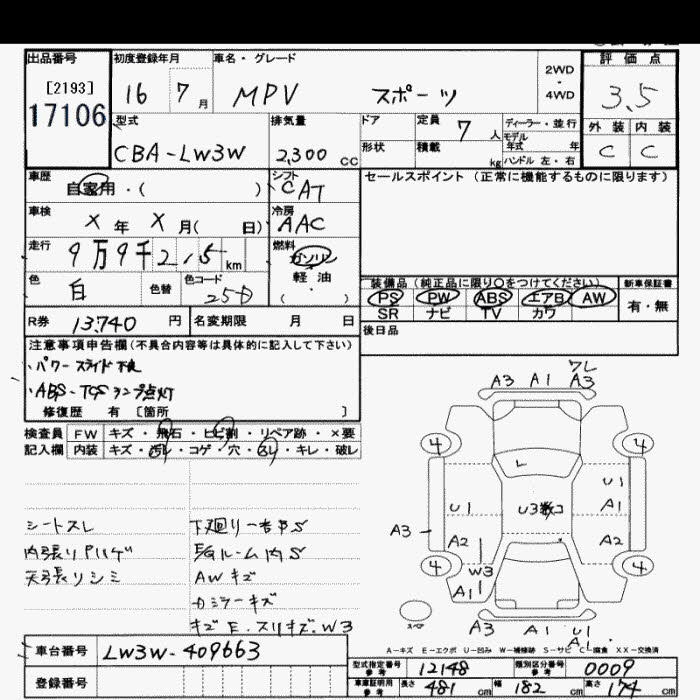 出品番号 初度登録年月 車名・グレード 評価点
[2193] 16 7月 MPV スポーツ 2WD・4WD 3.5
17106
型式 排気量 ドア 定員 7人 ディーラー・並行 外装 内装
CBA-LW3W 2,300 CC 形状 積載 kg モデル年式 年 C C
ハンドル 左・右
車歴 シフト セールスポイント（正常に機能するものに限ります）
自家用・( ) CAT
車検 冷房
X年 X月( 日) AAC
走行 燃料
9万9千215km ガソリン
色 白 色替 色コード 25D 軽油
( )
装備品（純正品に限り○をつけてください） 新車保証書
PS PW ABS エアB AW 有・無
SR ナビ TV カワ
R券 13740円 名変期限 月 日 後日品
注意事項申告欄（不具合内容等は具体的に記入して下さい）
・パワースライド不良
・ABS・TCSランプ点灯
修復歴 有 [箇所 ]
検査員 FW キズ・飛石・ヒビ割・リペア跡・×要
記入欄 内装 キズ・汚レ・コゲ・穴・スレ・キレ・破レ
シートスレ 下廻り一部S
内張リハゲ E/Gルーム内S
天張リシミ AWキズ
カミラーキズ
キズE.スリキズ.W3
ワレ
A3 A1 A3
4 4
L
U1
U1 U3数コ A1
A3 A2 A2
4 W3 4
A1
スペア
A3 A1 U1
A1
A-キズ E-エクボ U-凹み W-補修跡 S-サビ C-腐食 XX-交換済
車台番号 LW3W-409663
登録番号
型式指定番号 参考 12148 類別区分番号 参考 0009
車庫証明用 参考 長さ 481cm 幅 182cm 高さ 174cm